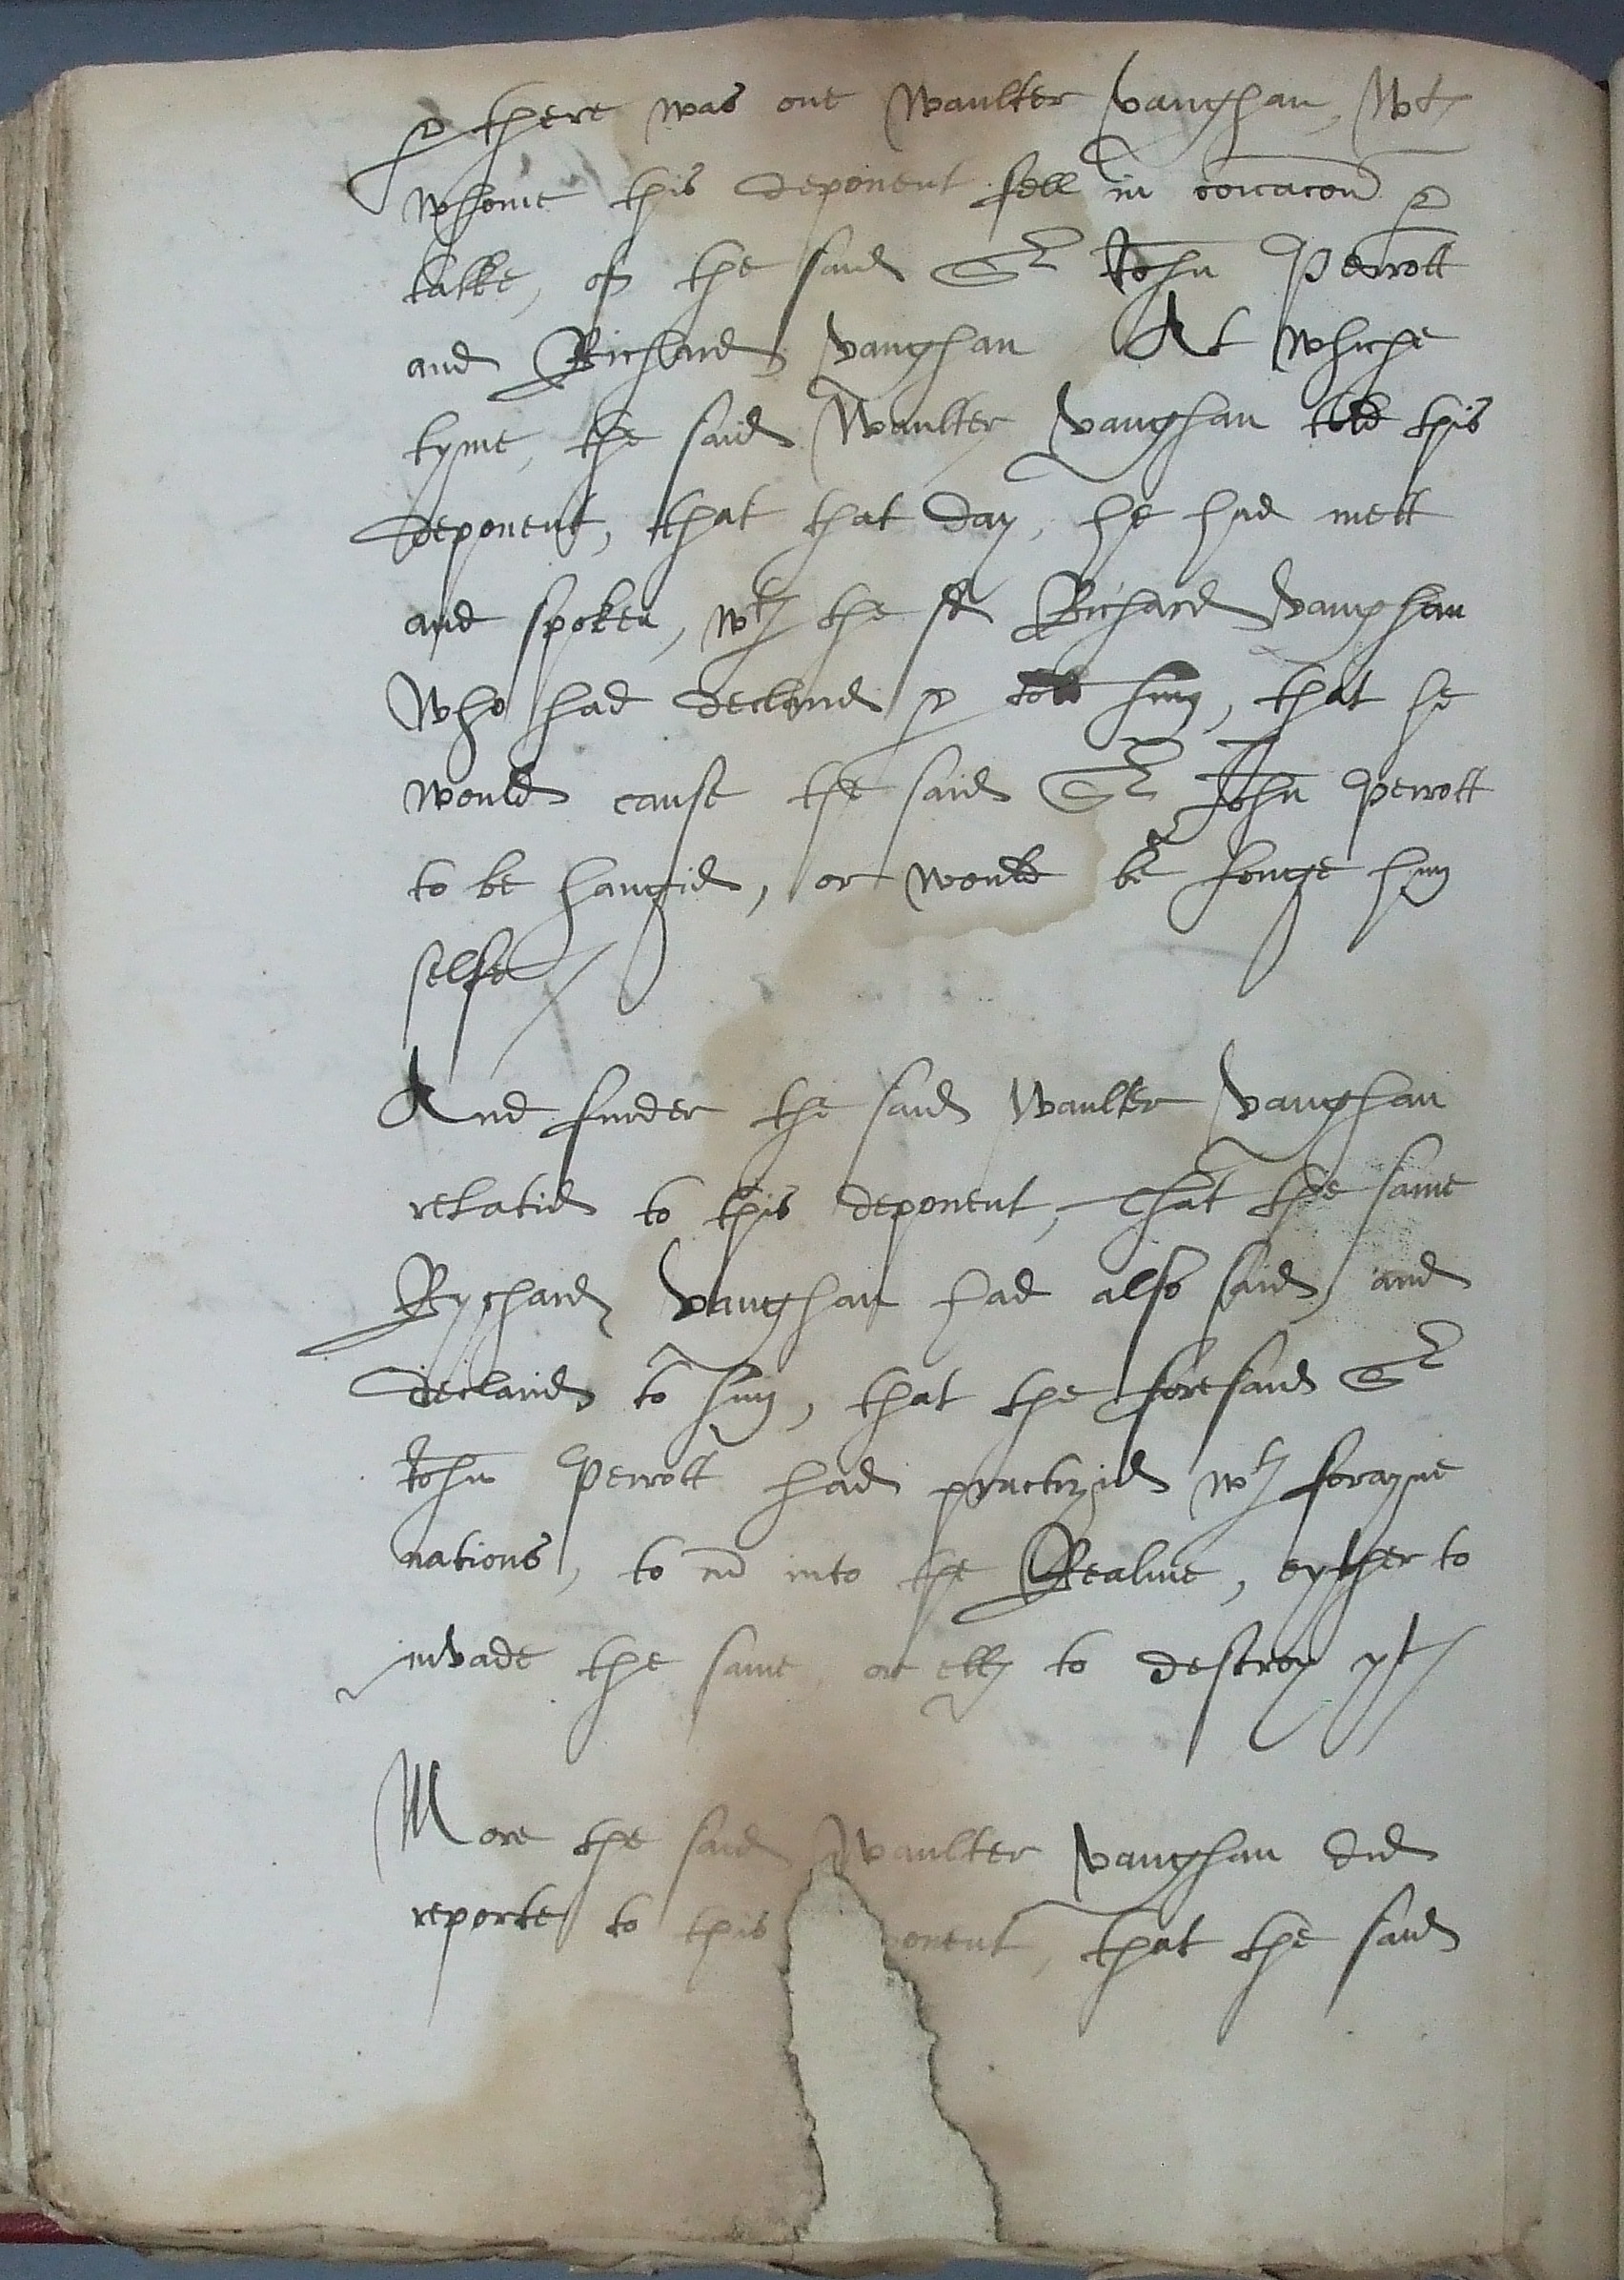 & there was one Waulter Vaughan, wth
whome this deponent fell in coicacon &
talke, of the said Sr John Perrott
and Richard Vaughan At whiche
tyme, the said Waulter Vaughan told this
deponent, that that day, he had mett
and spoken, wth the sd Richard Vaughan
who had declarid & told hym, that he
would cause the said Sr John Perrott
to be hangid, or would be honge hym
selfe
And furder the said Waulter Vaughan
relatid to this deponent, That the same
Rychard Vaughan had also said and
declarid to hym, that the foresaid Sr
John Perrott had practizid wth forayne
nations, to into the Realme, eyther to
invade the same, or ells to destroy yt
More the said Waulter Vaughan did
reporte to this onent, that the said